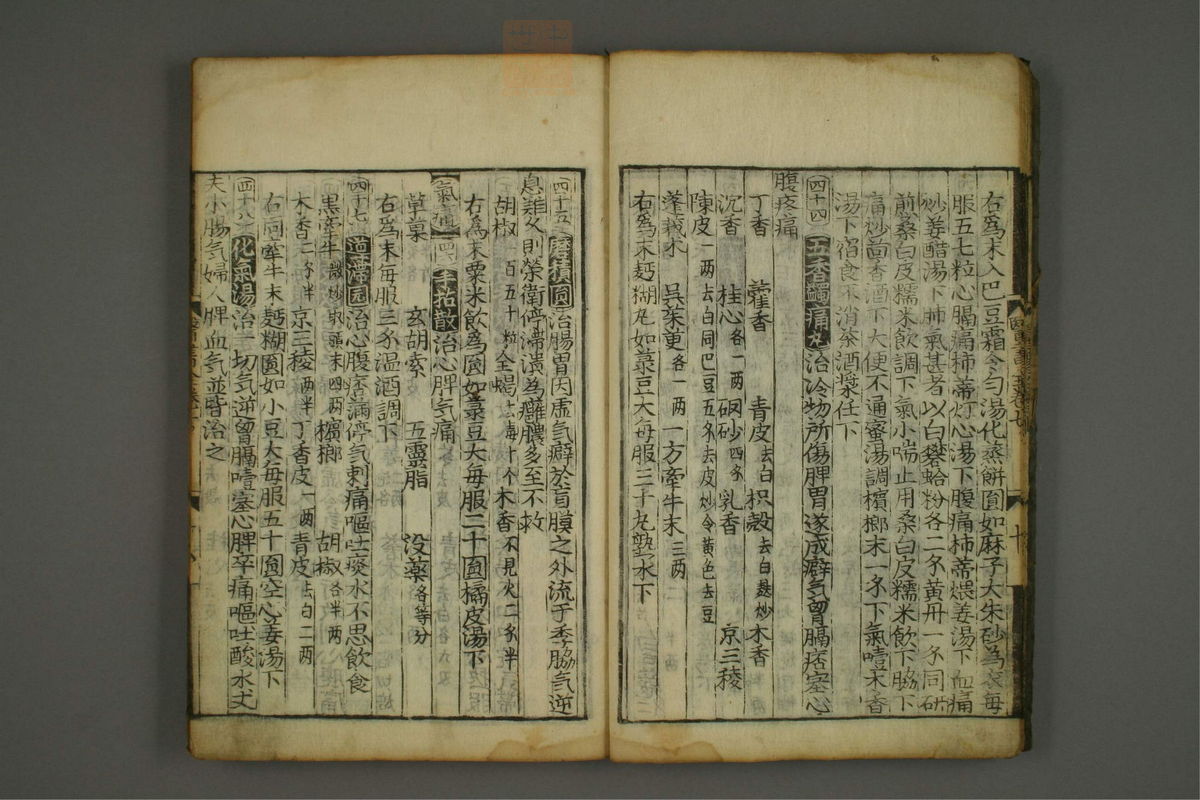 右爲末入巴豆霜令勻湯化蒸餅圓如麻子大朱砂為衣每
服五七粒心膈痛柿蒂灯心湯下腹痛柿蒂煨姜湯下血痛
炒姜醋湯下肺氣甚者以白礬蛤粉各二分黃丹一分同研
煎桑白皮糯米飲調下氣小喘止用桑白皮糯米飲下脇下
痛炒茴香酒下大便不通蜜湯調檳榔末一分下氣噎木香
湯下宿食不消茶酒漿任下
四十四 五香蠲痛丸 治冷物所傷脾胃遂成癖气胷膈痞塞心
腹疼痛
丁香 藿香 青皮去白 枳殼去白麩炒 木香
沉香 桂心各一两 囟砂四分 乳香 京三稜
陳皮一两去白同巴豆五分去皮炒令黃色去豆
蓬莪朮 吳茱萸各一两 一方牽牛末三两
右爲末麪糊丸如菉豆大每服三十丸𤍠水下
四十五 磨積圓 治腸胃因虛气癖於肓膜之外流于季脇气逆
息難久則榮衛停滯潰為癰膿多至不救
胡椒一百五十粒 全蝎去毒十个 木香不見火二分半
右爲末粟米飲為圓如菉豆大每服二十圓橘皮湯下
氣 四六 手拈散 治心脾气痛
草菓 玄胡索 五靈脂 没藥各等分
右爲末每服三分温酒調下
四十七 導滯圆 治心腹痞滿停气刺痛嘔吐痰水不思飲食
黑牽牛微炒取頭末四两 檳榔 胡椒各半两
木香一分半 京三稜两半 丁香皮一两 青皮去白二两
右同牽牛末麪糊圓如小豆大每服五十圓空心姜湯下
四十八 化氣湯 治一切气逆胷膈噎塞心脾卒痛嘔吐酸水丈
夫小腸气婦人脾血气並皆治之
十